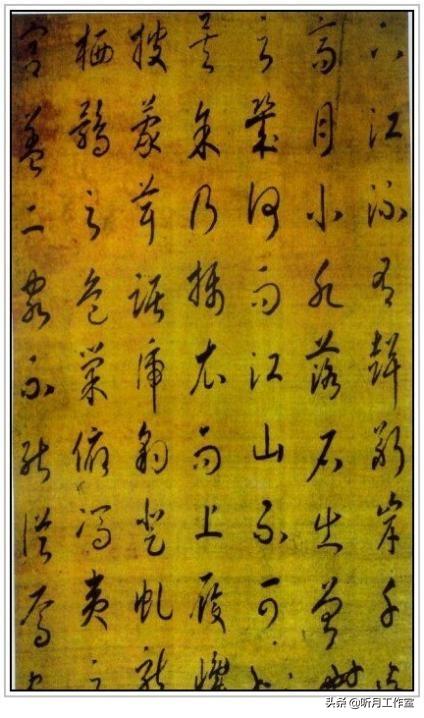 下江流有聲斷岸千尺
高月小水落石出曾
之幾何而江山不可
矣余乃攝衣而上履巉
披蒙茸踞虎豹登虬龍
栖鶻之危巢俯馮夷之
宮蓋二客不能從焉
头条 @听月工作室